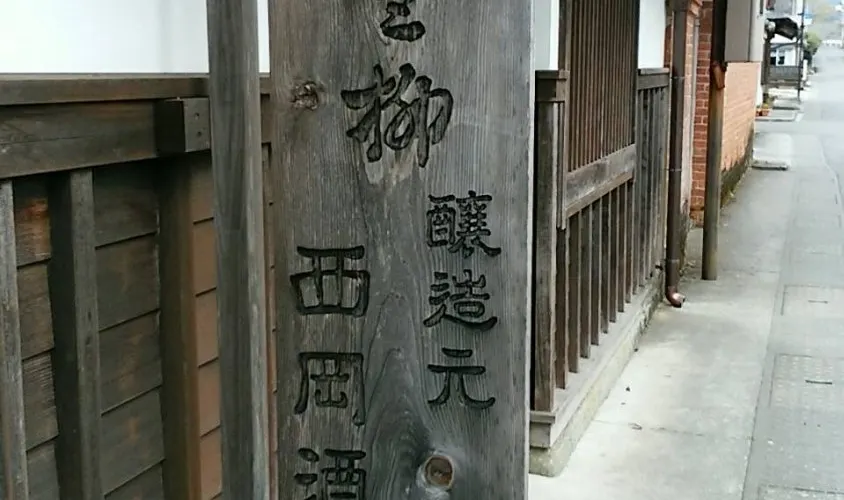 柳
釀造元
西岡酒